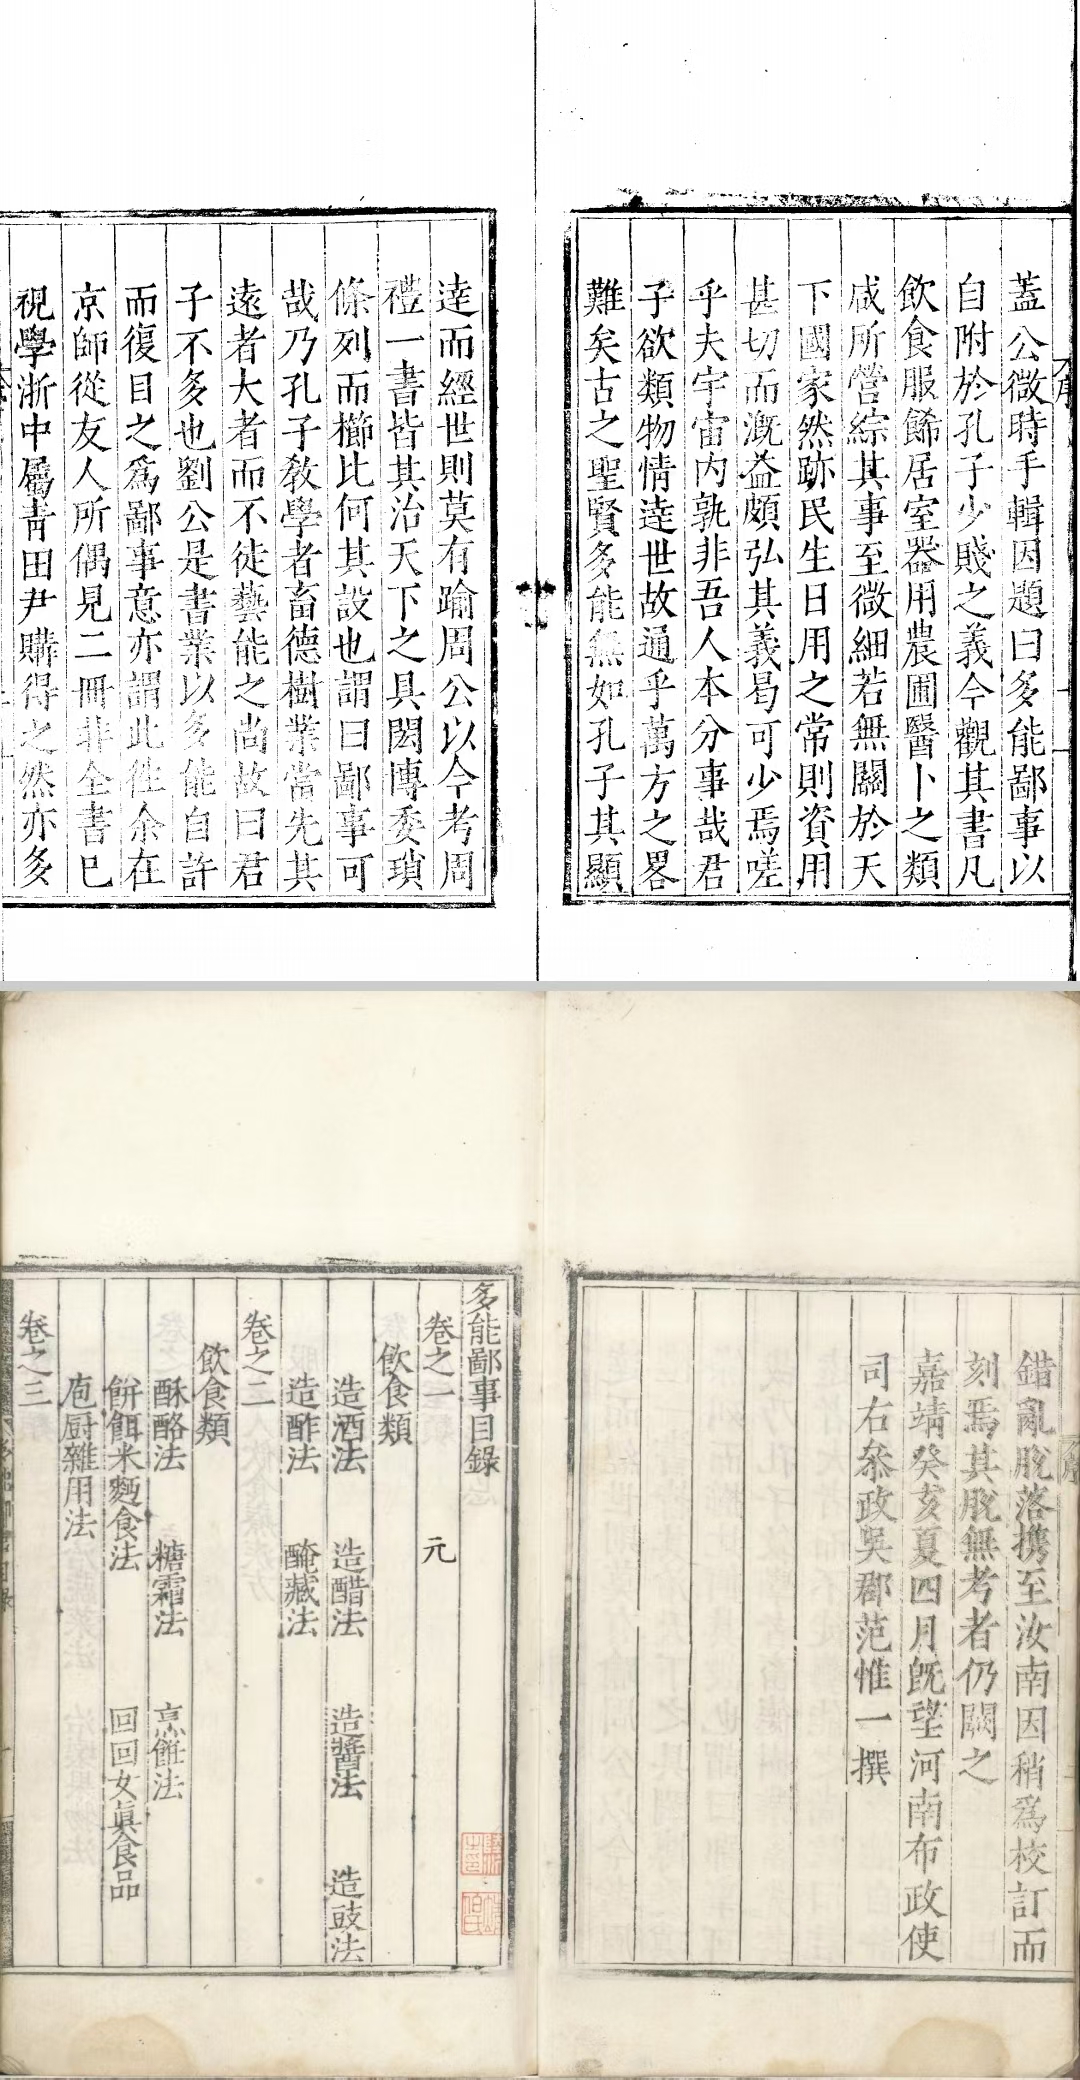 蓋公微時手輯因題曰多能鄙事以
自附於孔子少賤之義今觀其書凡
飲食服餙居室器用農圃醫卜之類
咸所營綜其事至微細若無關於天
下國家然跡民生日用之常則資用
甚切而漑益頗弘其義曷可少焉嗟
乎夫宇宙內孰非吾人本分事哉君
子欲類物情達世故通乎萬方之畧
難矣古之聖賢多能無如孔子其顯
達而經世則莫有踰周公以今考周
禮一書皆其治天下之具閎博委瑣
條列而櫛比何其設也謂曰鄙事可
哉乃孔子教學者畜德樹業當先其
遠者大者而不徒藝能之尚故曰君
子不多也劉公是書業以多能自許
而復目之爲鄙事意亦謂此徃余在
京師從友人所偶見二冊非全書已
視學浙中屬青田尹購得之然亦多
錯亂脫落携至汝南因稍爲校訂而
刻焉其脫無考者仍闕之
嘉靖癸亥夏四月旣望河南布政使
司右叅政吳郡范惟一撰
多能鄙事目錄
卷之一 元
飲食類
造酒法 造醋法 造醬法 造豉法
造酢法 醃藏法
卷之二
飲食類
酥酪法 糖霜法 烹飪法
餅餌米麪食法 回回女眞食品
庖厨雜用法
卷之三